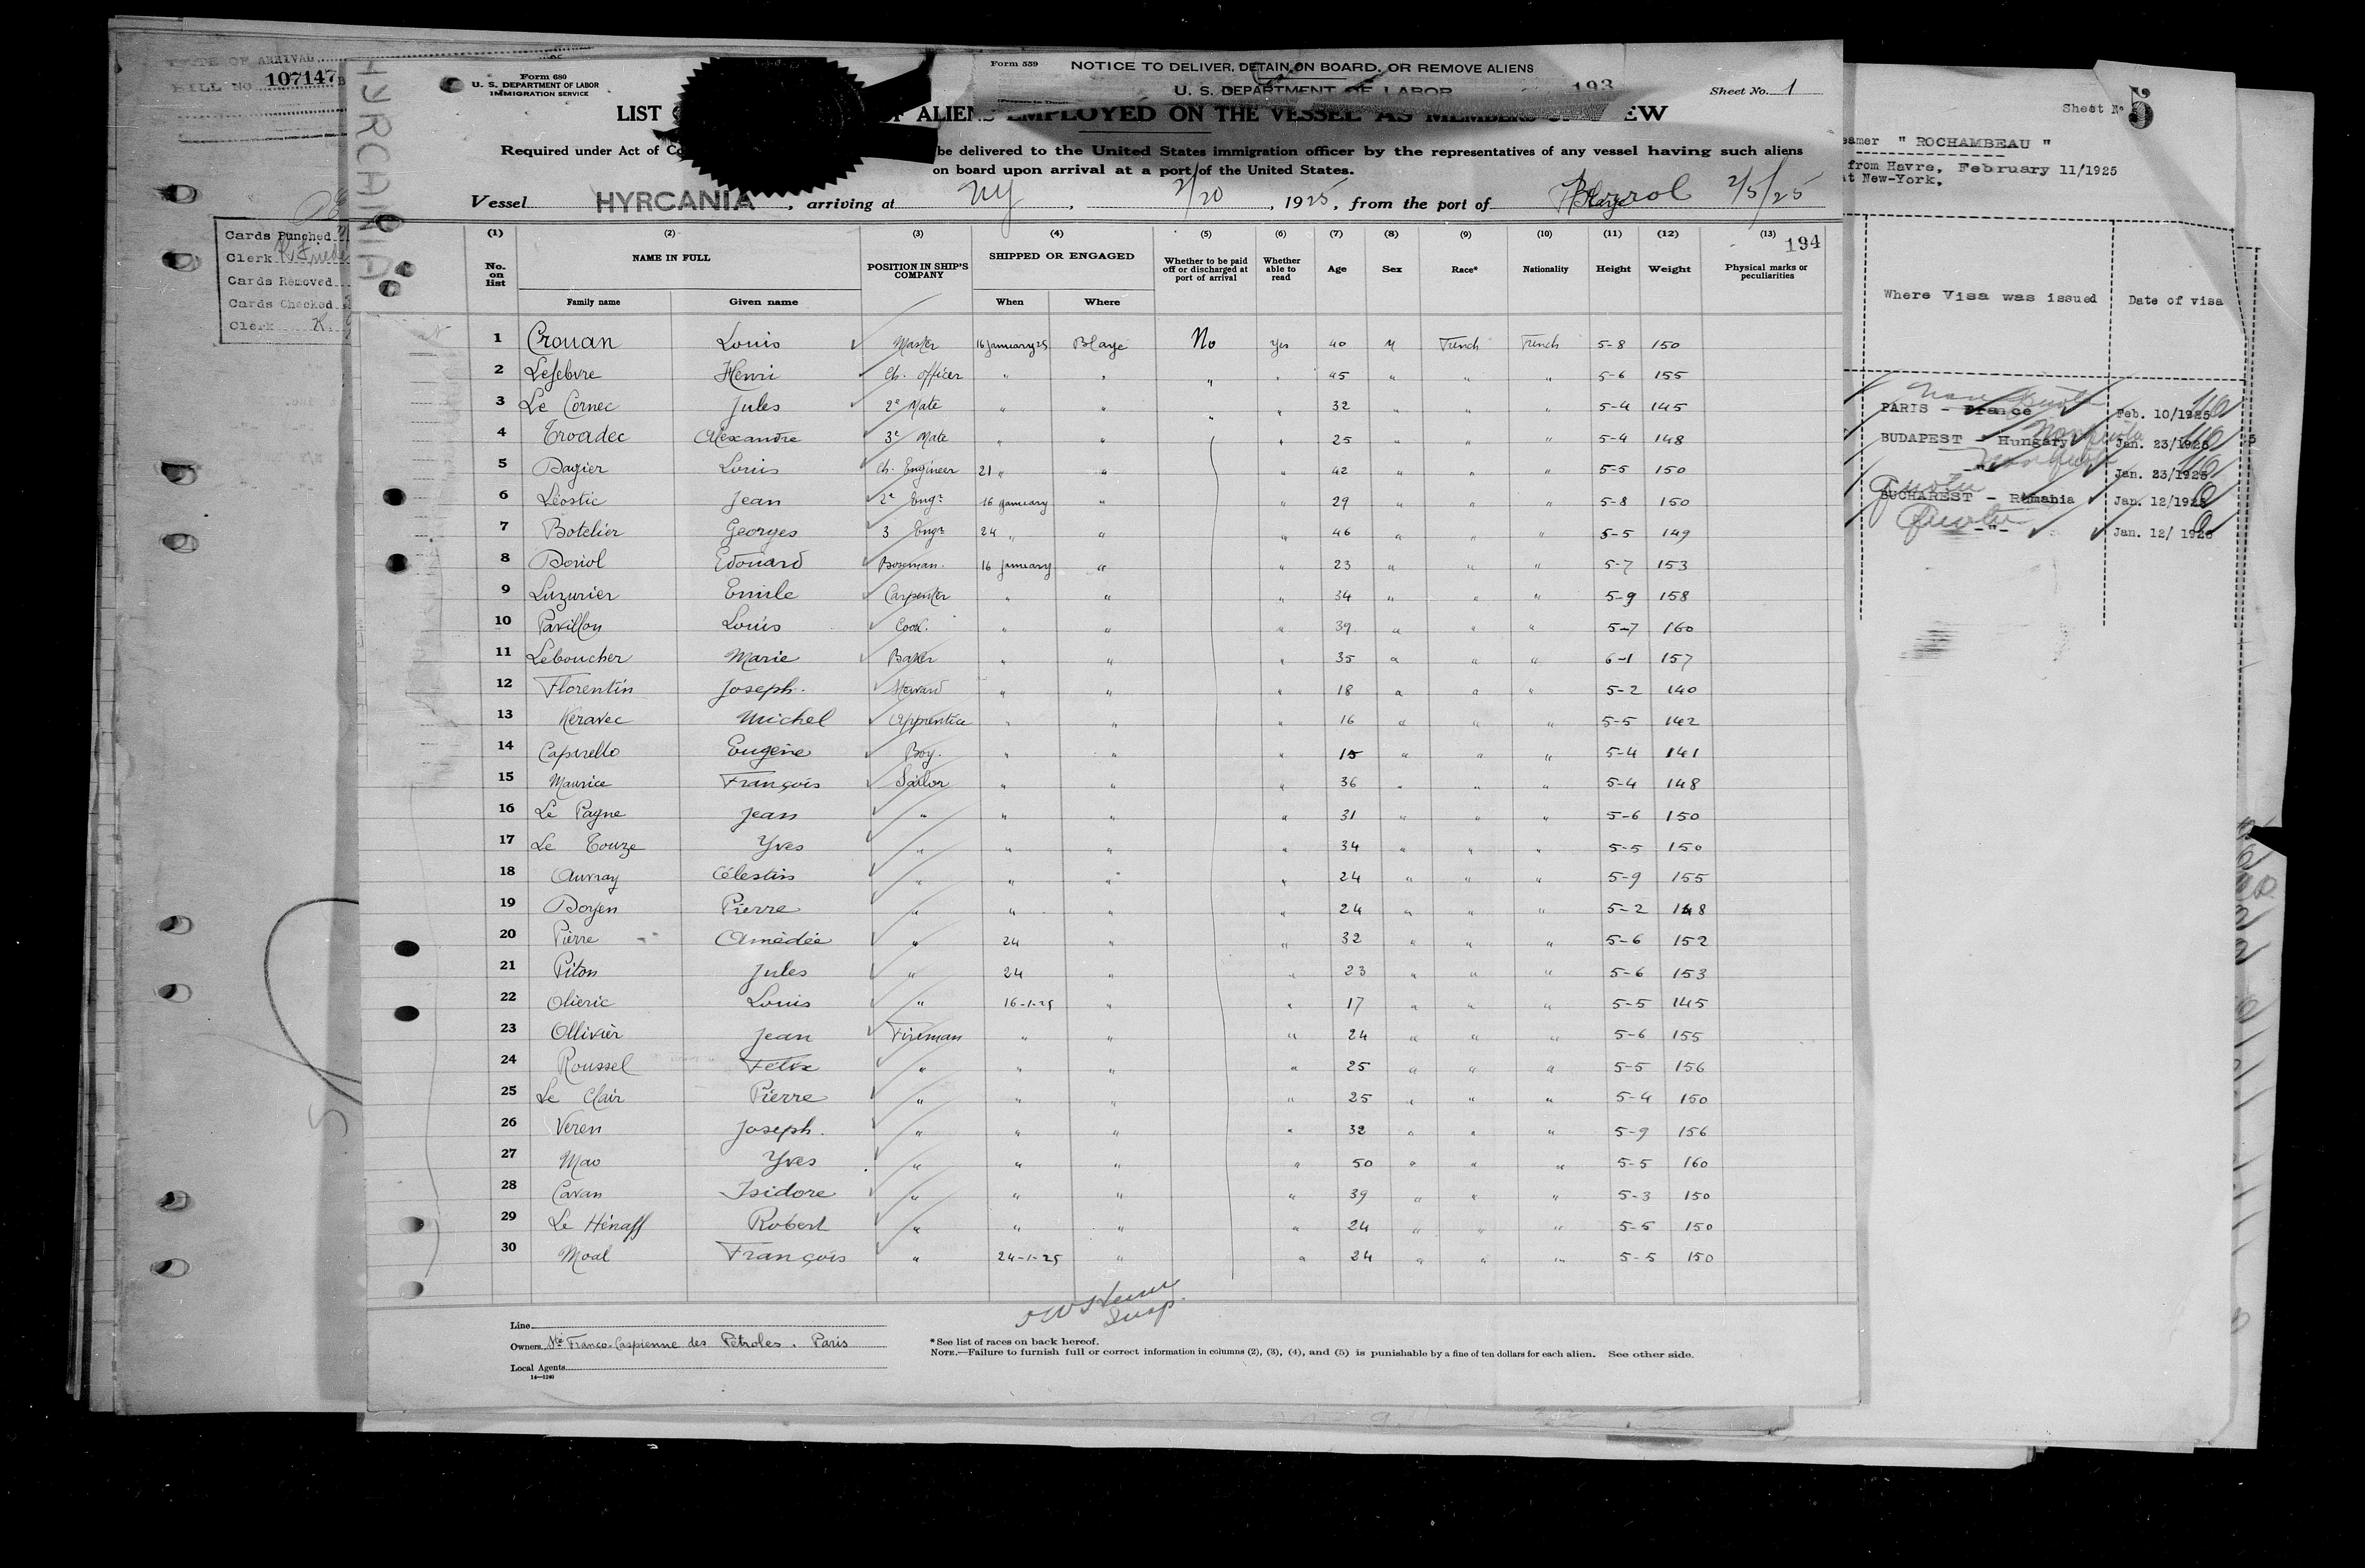 DATE OF ARRIVAL
BILL NO. 107147
Cards Punched
Clerk
Cards Removed
Cards Checked
Clerk K.
HYRCANIA
Form 680
U. S. DEPARTMENT OF LABOR
IMMIGRATION SERVICE
Form 559
NOTICE TO DELIVER, DETAIN ON BOARD, OR REMOVE ALIENS
U. S. DEPARTMENT OF LABOR
193
Sheet No. 1
LIST OF ALIENS EMPLOYED ON THE VESSEL AS MEMBERS OF CREW
Required under Act of be delivered to the United States immigration officer by the representatives of any vessel having such aliens
on board upon arrival at a port of the United States.
Vessel HYRCANIA, arriving at NY, 2/20, 1925, from the port of 2/5/25
(1) (2) (3) (4) (5) (6) (7) (8) (9) (10) (11) (12) (13) 194
No. on list NAME IN FULL POSITION IN SHIP'S COMPANY SHIPPED OR ENGAGED Whether to be paid off or discharged at port of arrival Whether able to read Age Sex Race* Nationality Height Weight Physical marks or peculiarities
Family name Given name When Where
1 Crouan Louis Master 16 January 25 Blaye No Yes 40 M French French 5-8 150
2 Lefebvre Henri Ch. officer " " " " 45 " " " 5-6 155
3 Le Cornec Jules 2e Mate " " " " 32 " " " 5-4 145
4 Troadec Alexandre 3e Mate " " " 25 " " " 5-4 148
5 Bagier Louis Ch. Engineer 21 " " " 42 " " " 5-5 150
6 Léostic Jean 2e Engr 16 January " " 29 " " " 5-8 150
7 Botelier Georges 3 Engr 24 " " " 46 " " " 5-5 149
8 Doriol Edouard Boseman. 16 January " " 23 " " " 5-7 153
9 Luzurier Emile Carpenter " " " 34 " " " 5-9 158
10 Pavillon Louis Cook. " " " 39 " " " 5-7 160
11 Leboucher Marie Baker " " " 35 " " " 6-1 157
12 Florentin Joseph. Steward " " " 18 " " " 5-2 140
13 Keravec Michel Apprentice " " " 16 " " " 5-5 142
14 Caparello Eugène Boy. " " " 15 " " " 5-4 141
15 Maurice François Sailor " " " 36 " " " 5-4 148
16 Le Pagne Jean " " " " 31 " " " 5-6 150
17 Le Touze Yves " " " " 34 " " " 5-5 150
18 Auvray Célestin " " " " 24 " " " 5-9 155
19 Doyen Pierre " " " " 24 " " " 5-2 148
20 Pierre Amédée " 24 " " 32 " " " 5-6 152
21 Piton Jules " 24 " " 23 " " " 5-6 153
22 Olieric Louis " 16-1-25 " " 17 " " " 5-5 145
23 Ollivier Jean Fireman " " " 24 " " " 5-6 155
24 Roussel Felix " " " " 25 " " " 5-5 156
25 Le Clair Pierre " " " " 25 " " " 5-4 150
26 Veren Joseph. " " " " 32 " " " 5-9 156
27 Mao Yves " " " " 50 " " " 5-5 160
28 Cavan Isidore " " " " 39 " " " 5-3 150
29 Le Hénaff Robert " " " " 24 " " " 5-5 150
30 Moal François " 24-1-25 " " 24 " " " 5-5 150
Insp.
Line
Owners Sté Franco-Caspienne des Petroles. Paris
Local Agents
14—1240
*See list of races on back hereof.
NOTE.—Failure to furnish full or correct information in columns (2), (3), (4), and (5) is punishable by a fine of ten dollars for each alien. See other side.
Sheet No 5
" ROCHAMBEAU "
from Havre, February 11/1925
at New-York,
Where Visa was issued Date of visa
Non Quota
PARIS - France Feb. 10/1925
Non quota
BUDAPEST - Hungary Jan. 23/1925
Non Quota
-"- Jan. 23/1925
Quota
BUCHAREST - Rumania Jan. 12/1925
Quota
-"- Jan. 12/ 1925